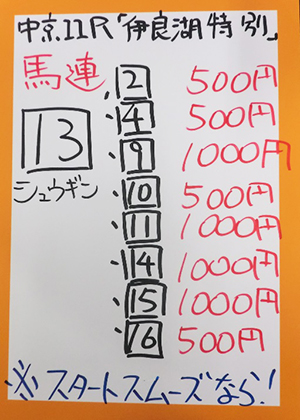 中京11R「伊良湖特別」
馬連
13
シュウギン
2 500円
4 500円
9 1000円
10 500円
11 1000円
14 1000円
15 1000円
16 500円
※スタートスムーズなら!